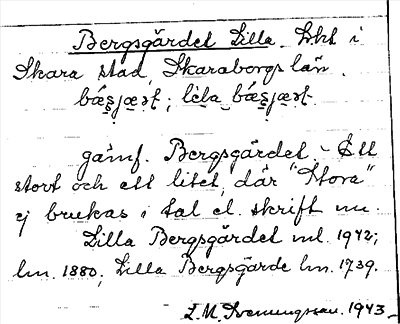 Bergsgärdet Lilla. Lht i
Skara stad, Skaraborgs län.
bæ̀s̠jæṛt; lìla bæ̀s̠jæṛt
jämf. Bergsgärdet. - Ett
stort och ett litet, där "Stora"
ej brukas i tal el. skrift nu.
Lilla Bergsgärdet ml. 1942;
hm. 1880; Lilla Bergsgärde hm. 1739.
L.M. Svenungsson. 1943